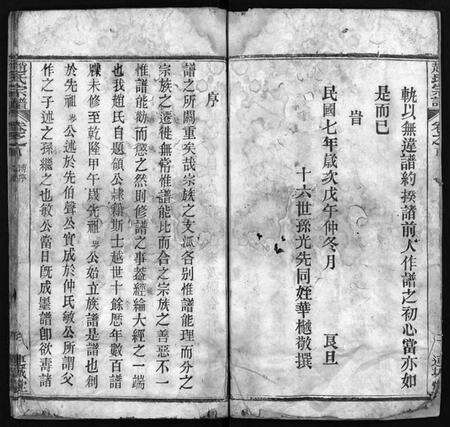 軌以無違譜約揆譜前人作譜之初心當亦如
是而已
旹
民國七年歲次戊午仲冬月　　　良旦
十六世孫光先同姪華樾敬撰
趙氏宗譜
序
譜之所關重矣哉宗族之支派各別惟譜能理而分之
宗族之遷徙無常惟譜能比而合之宗族之善惡不一
惟譜能勸而懲之然則修譜之事葢經綸大經之一端
也我趙氏自題領公隸籍斯土越世十餘歷年數百譜
牒未修至乾隆甲午歲先祖 公始立族譜是譜也創
於先祖 公述於先伯聲公實成於仲氏敏公所謂父
作之子述之孫繼之也敏公當日旣成墨譜卽欲壽諸
趙氏宗譜